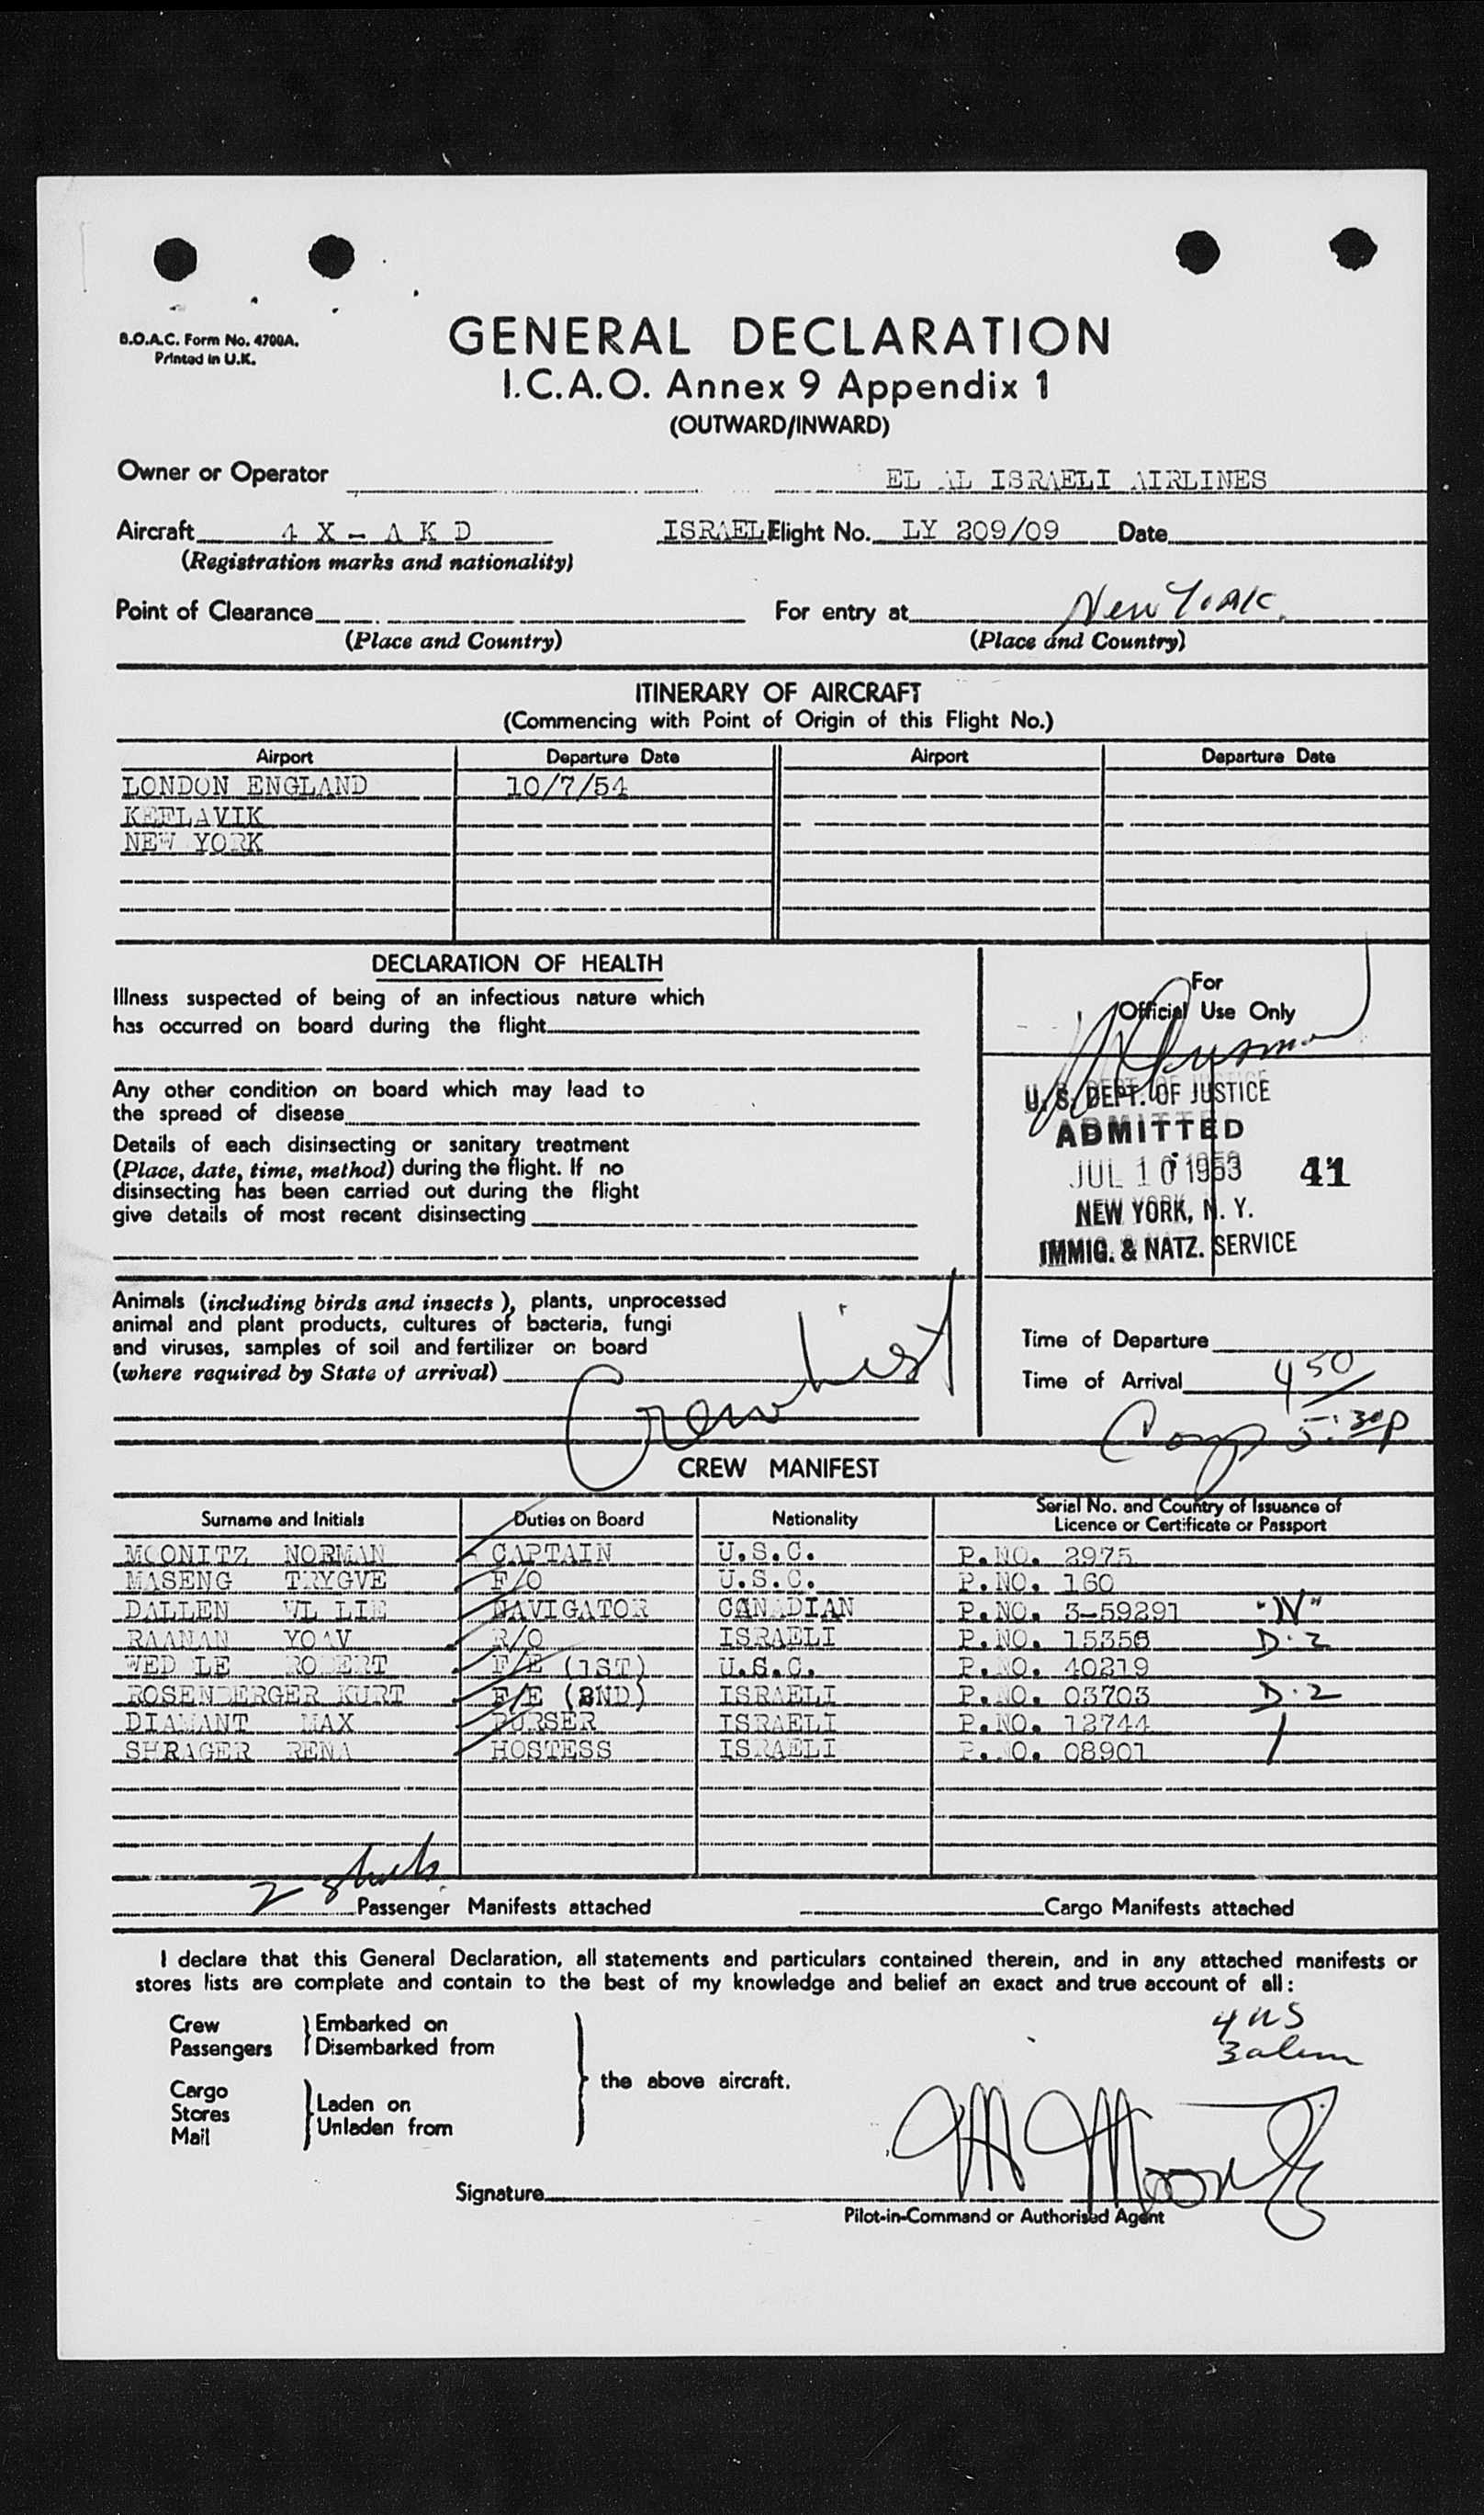 B.O.A.C. Form No. 4700A.
Printed in U.K.
GENERAL DECLARATION
I.C.A.O. Annex 9 Appendix 1
(OUTWARD/INWARD)
Owner or Operator EL AL ISRAELI AIRLINES
Aircraft 4 X - A K D ISRAEL Flight No. LY 209/09 Date
(Registration marks and nationality)
Point of Clearance For entry at New York.
(Place and Country) (Place and Country)
ITINERARY OF AIRCRAFT
(Commencing with Point of Origin of this Flight No.)
Airport Departure Date Airport Departure Date
LONDON ENGLAND 10/7/54
KEFLAVIK
NEW YORK
DECLARATION OF HEALTH
Illness suspected of being of an infectious nature which
has occurred on board during the flight
Any other condition on board which may lead to
the spread of disease
Details of each disinsecting or sanitary treatment
(Place, date, time, method) during the flight. If no
disinsecting has been carried out during the flight
give details of most recent disinsecting
For
Official Use Only
U. S. DEPT. OF JUSTICE
ADMITTED
JUL 10 1953 41
NEW YORK, N. Y.
IMMIG. & NATZ. SERVICE
Animals (including birds and insects), plants, unprocessed
animal and plant products, cultures of bacteria, fungi
and viruses, samples of soil and fertilizer on board
(where required by State of arrival)
Crew List
Time of Departure
Time of Arrival 4 50
Comp 5:30p
CREW MANIFEST
Surname and Initials Duties on Board Nationality Serial No. and Country of Issuance of
Licence or Certificate or Passport
MOONITZ NORMAN CAPTAIN U.S.C. P.NO. 2975
MASENG TRYGVE F/O U.S.C. P.NO. 160
DALLEN NAVIGATOR CANADIAN P.NO. 3-59291 "N"
RAANAN YOAV R/O ISRAELI P.NO. 15356 D-2
ROBERT F/E (1ST) U.S.C. P.NO. 40219
ROSENBERGER KURT F/E (2ND) ISRAELI P.NO. 03703 D-2
DIAMANT MAX PURSER ISRAELI P.NO. 12744
SHRAGER RENA HOSTESS ISRAELI P.NO. 08901
2 sheets Passenger Manifests attached Cargo Manifests attached
I declare that this General Declaration, all statements and particulars contained therein, and in any attached manifests or
stores lists are complete and contain to the best of my knowledge and belief an exact and true account of all:
4 US
3 alien
Crew Embarked on
Passengers Disembarked from
the above aircraft.
Cargo
Stores Laden on
Mail Unladen from
Signature N Moonitz
Pilot-in-Command or Authorised Agent